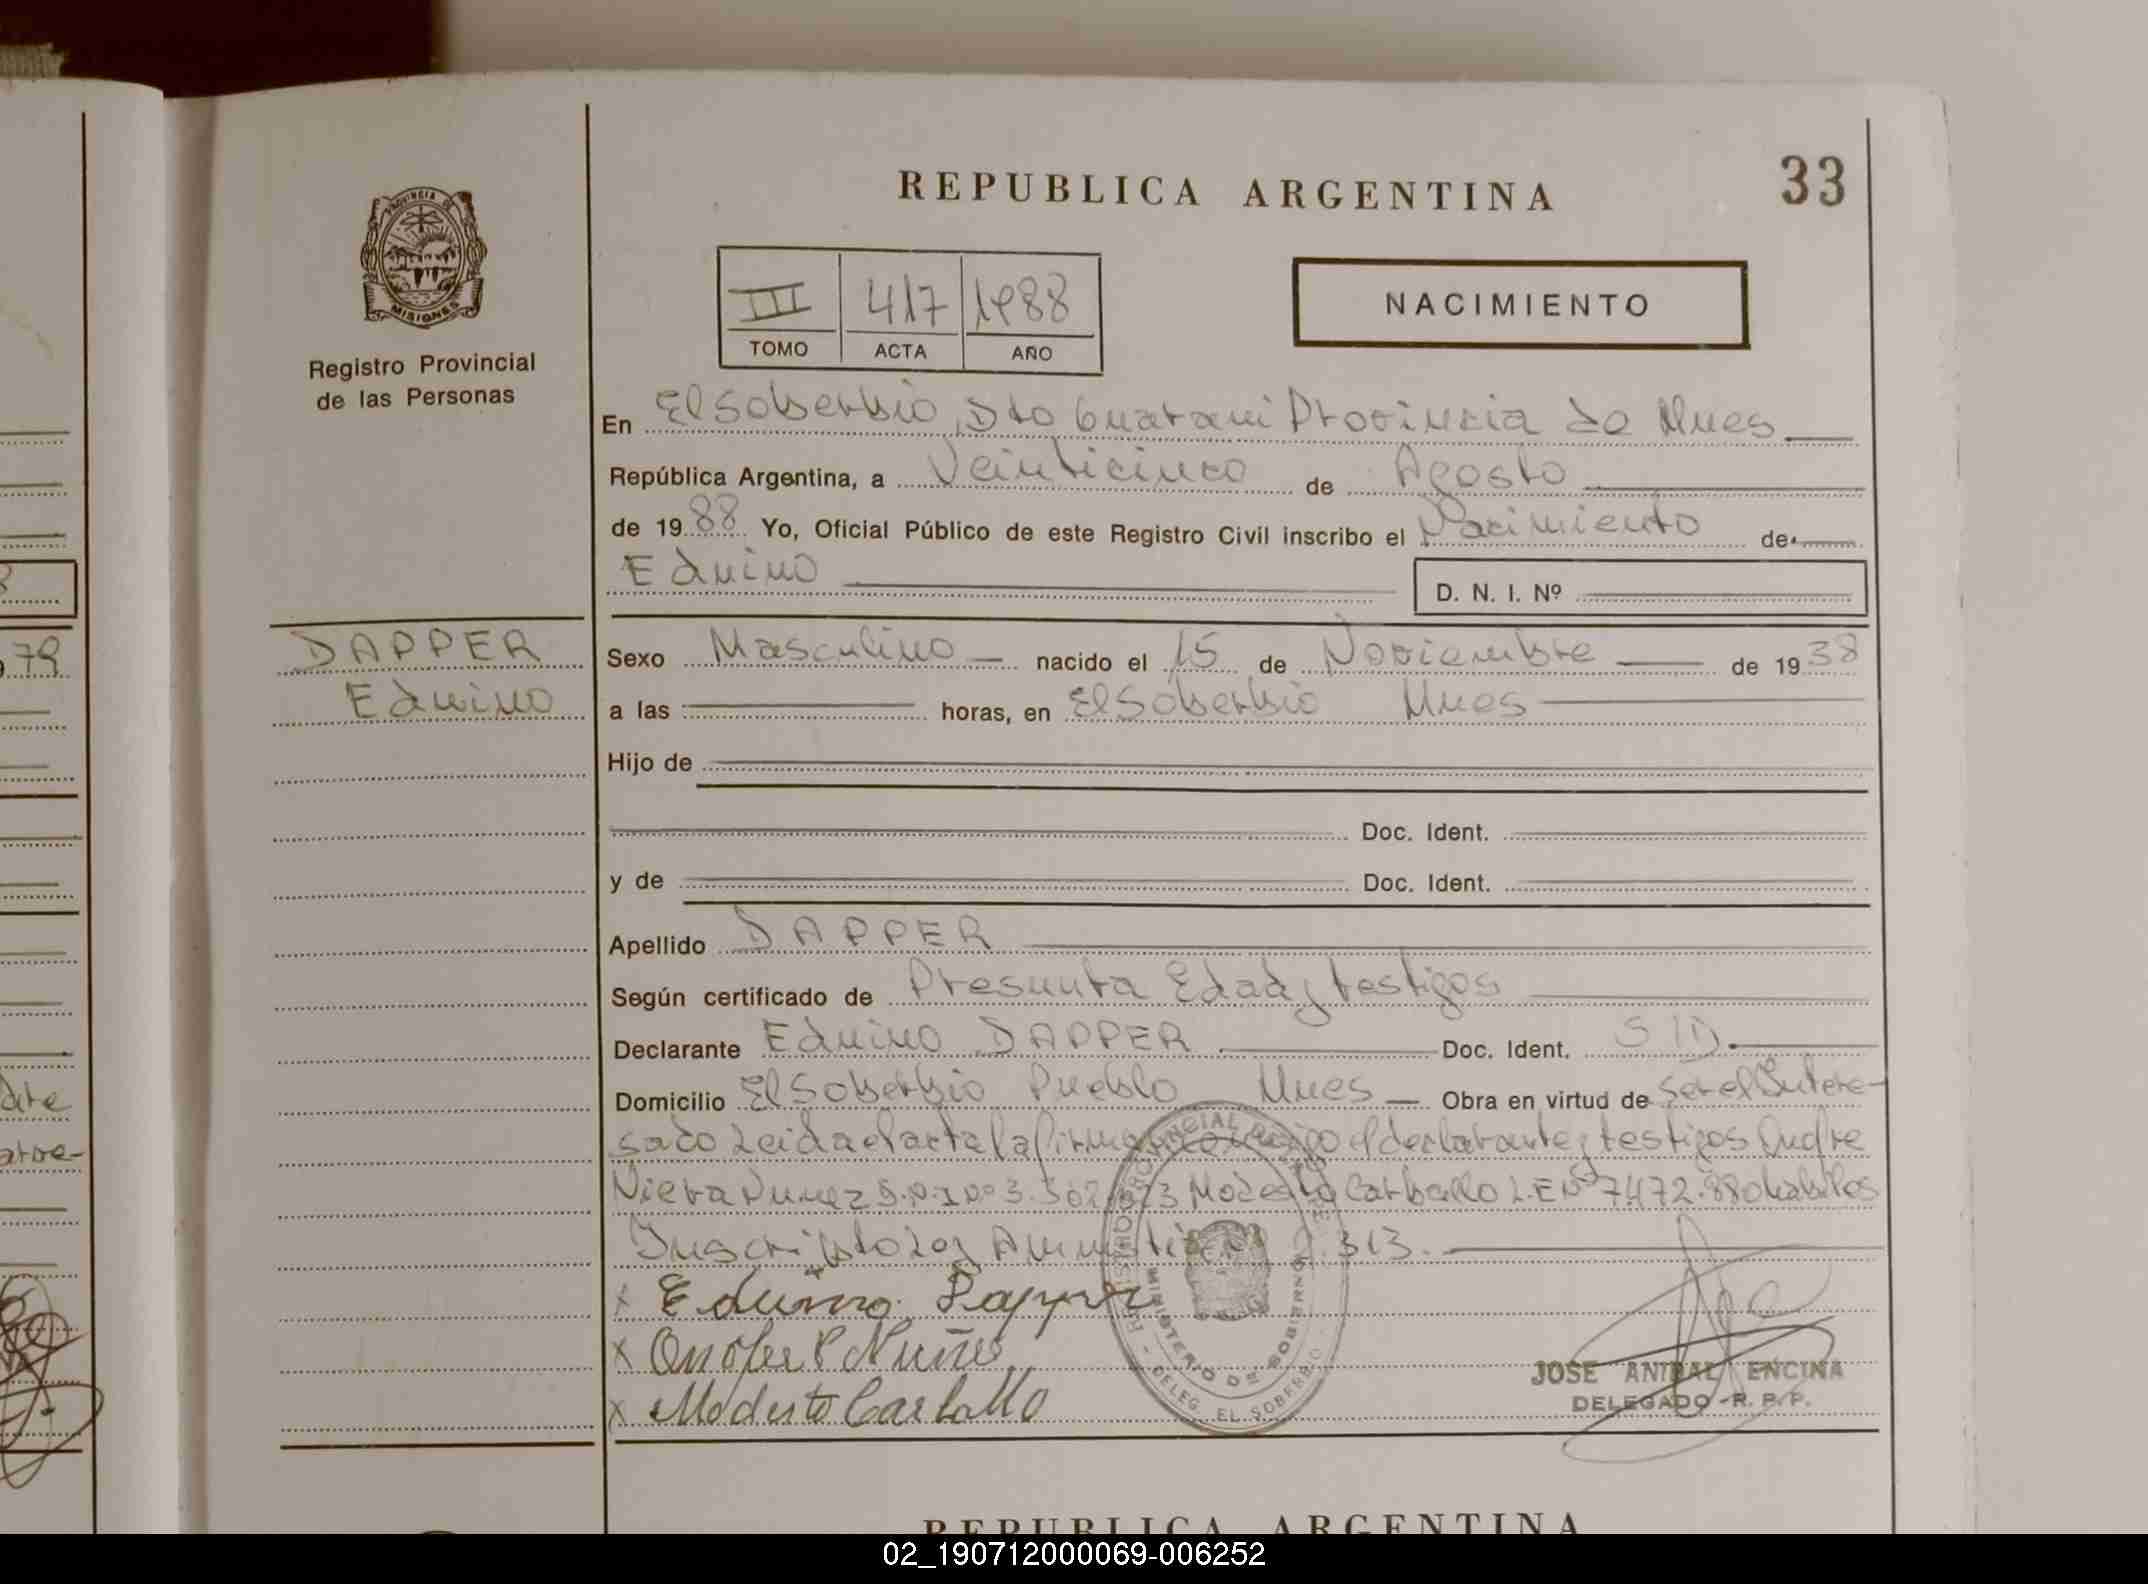 33
REPUBLICA ARGENTINA
PROVINCIA DE
MISIONES
Registro Provincial
de las Personas
III 417 1988
TOMO ACTA AÑO
NACIMIENTO
En El Soberbio, Dto Guarani Provincia de Mnes
República Argentina, a Veinticinco de Agosto
de 1988 Yo, Oficial Público de este Registro Civil inscribo el Nacimiento de
Eduino
D. N. I. Nº
DAPPER
Eduino
Sexo Masculino nacido el 15 de Noviembre de 1938
a las horas, en El Soberbio Mnes
Hijo de
Doc. Ident.
y de Doc. Ident.
Apellido DAPPER
Según certificado de Presunta Edad y testigos
Declarante Eduino DAPPER Doc. Ident. S/D.
Domicilio El Soberbio Pueblo Mnes Obra en virtud de ser el Intere-
sado Leida el acta la firma conmigo el declarante y testigos
Nuñez Modesto Carballo L.E Nº 7.472.880 habiles
Inscripto Ley Amnistia 313.
x Eduino Dapper
x Nuñes
x Modesto Carballo
MINISTERIO DE GOBIERNO
DELEG. EL SOBERBIO
JOSE ANIBAL ENCINA
DELEGADO R. P. P.
REPUBLICA ARGENTINA
79
02_190712000069-006252